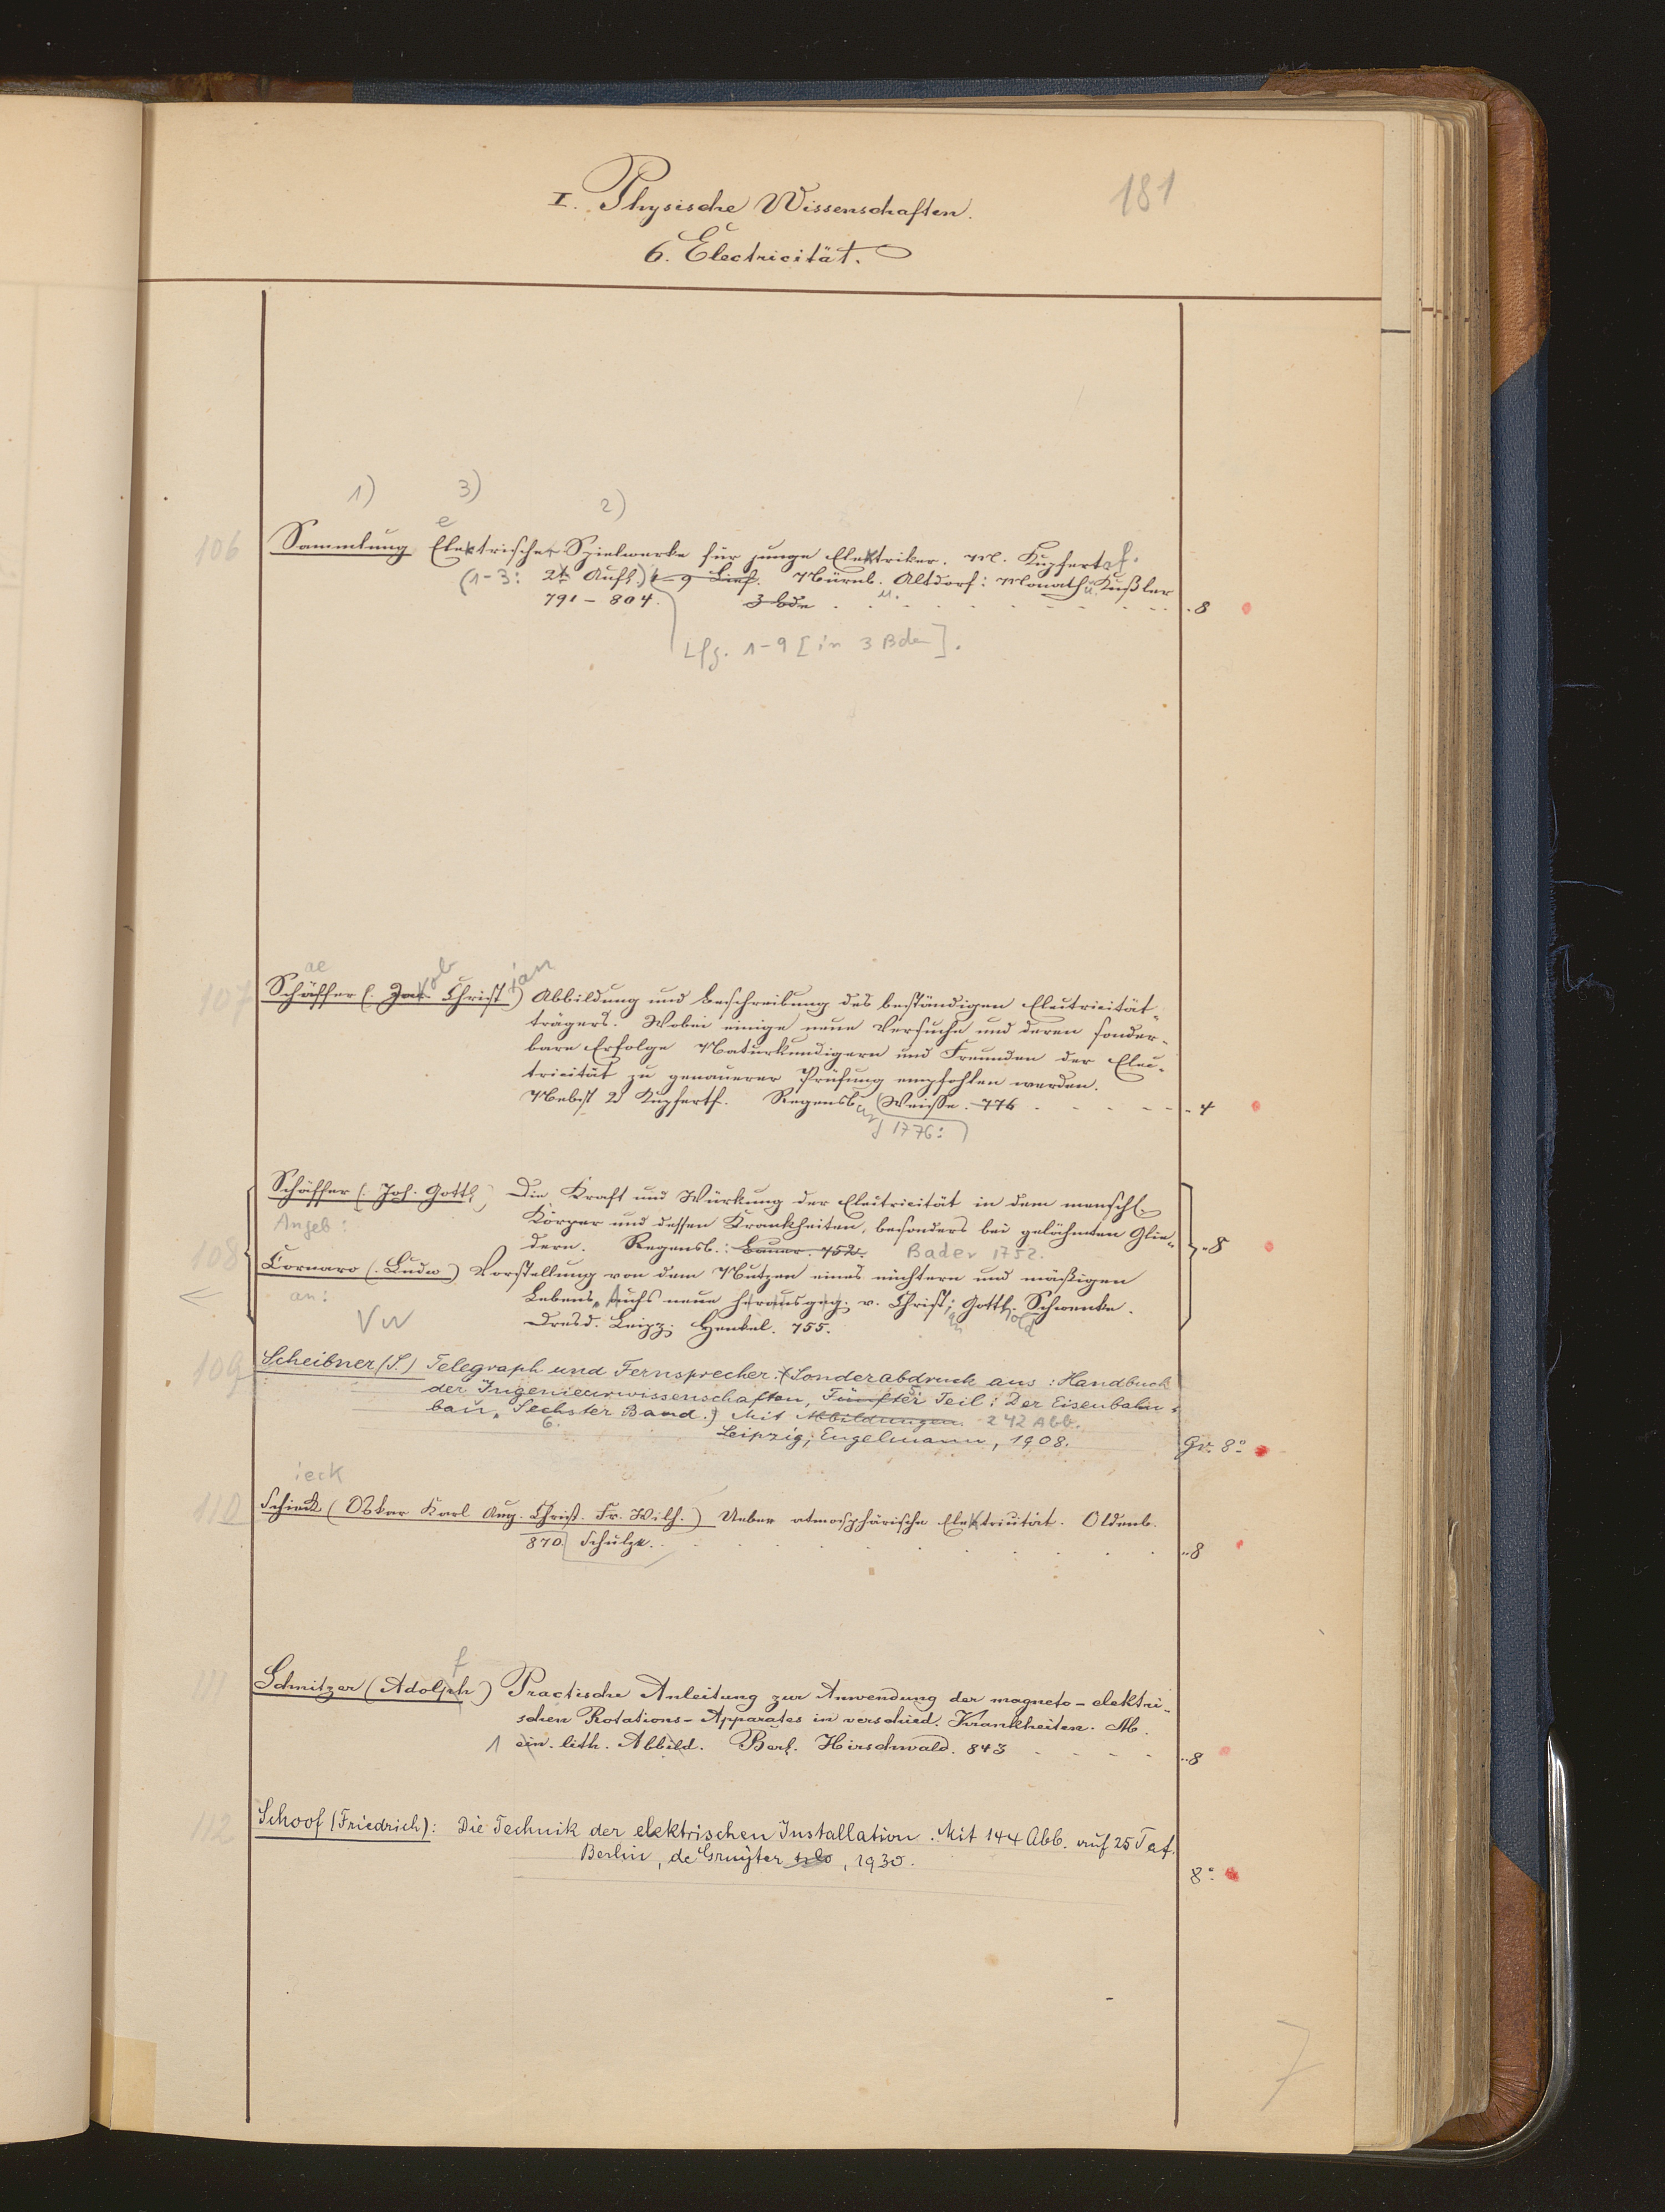 I. Physische Wissenschaften.
181
6. Electricität.
1) 3) 2)
e
106 Sammlung Elektrischer Spielwerke für junge Elektriker. M. Kupfertaf.
(1-3: 2te Aufl.) 1-9 Lief. Nürnb. Altdorf: Monath u. Kußler
791-804. 3 Bde 8
Lfg. 1-9 [in 3 Bden].
ae kob ian
107 Schäffer (Jac. Christ.) Abbildung und Beschreibung des beständigen Electricität-
trägers. Wobei einige neue Versuche und deren sonder-
bare Erfolge Naturkundigern und Freunden der Elec-
tricität zu genauerer Prüfung empfohlen werden.
Nebst 2 Kupfertf. Regensb. Weisse. 776 4
1776:
Schäffer (Joh. Gottl.) Die Kraft und Würkung der Electricität in dem menschl.
Angeb: Körper und dessen Krankheiten, besonders bei gelähmten Glie-
108 dern. Regensb.: Bauer. 752. Bader 1752. 8
Cornaro (Ludw.) Vorstellung von dem Nutzen eines nüchtern und mäßigen
an: Lebens, Aufs neue herausgeg. v. Christ. Gotth. Schwenke.
an old
Vw Dresd. Leipz. Henkel. 755.
109 Scheibner (S.) Telegraph und Fernsprecher. (Sonderabdruck aus: Handbuch
der Ingenieurwissenschaften, Fünfter Teil: Der Eisenbahn-
bau, Sechster Band.) Mit Abbildungen. 242 Abb.
6. Leipzig, Engelmann, 1908. Gr. 8°
ieck
110 Schieck (Oskar Karl Aug. Christ. Fr. Wilh.) Ueber atmosphärische Elektricität. Oldenb.
870. Schulze. 8
f
111 Schnitzer (Adolph) Practische Anleitung zur Anwendung der magneto-elektri-
schen Rotations-Apparates in verschied. Krankheiten. M.
1 ein. lith. Abbild. Berl. Hirschwald. 843 8
112 Schoof (Friedrich): Die Technik der elektrischen Installation. Mit 144 Abb. auf 25 Taf.
Berlin, de Gruyter, 1930. 8°
7